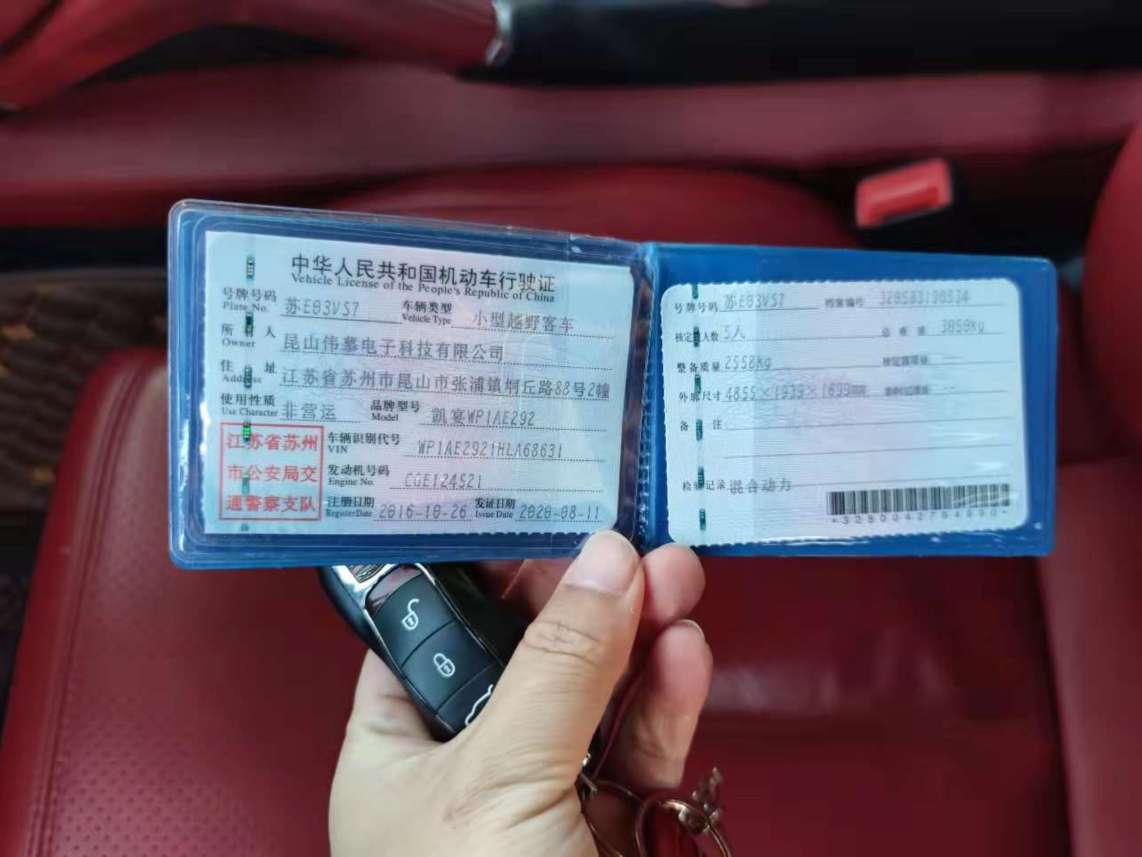 中华人民共和国机动车行驶证
Vehicle License of the People's Republic of China
号牌号码 苏E03VS7 车辆类型 小型越野客车
Plate No. Vehicle Type
所有人 昆山伟慕电子科技有限公司
Owner
住址 江苏省苏州市昆山市张浦镇垌丘路88号2幢
Address
使用性质 非营运 品牌型号 凯宴WP1AE292
Use Character Model
江苏省苏州
市公安局交
通警察支队
车辆识别代号 WP1AE2921HLA68631
VIN
发动机号码 CGE124521
Engine No.
注册日期 2016-10-26 发证日期 2020-08-11
Register Date Issue Date
号牌号码 苏E03VS7 档案编号
核定人数 5人 总质量
整备质量 2558kg
外廓尺寸 4855×1939×1699
备注
检验记录 混合动力